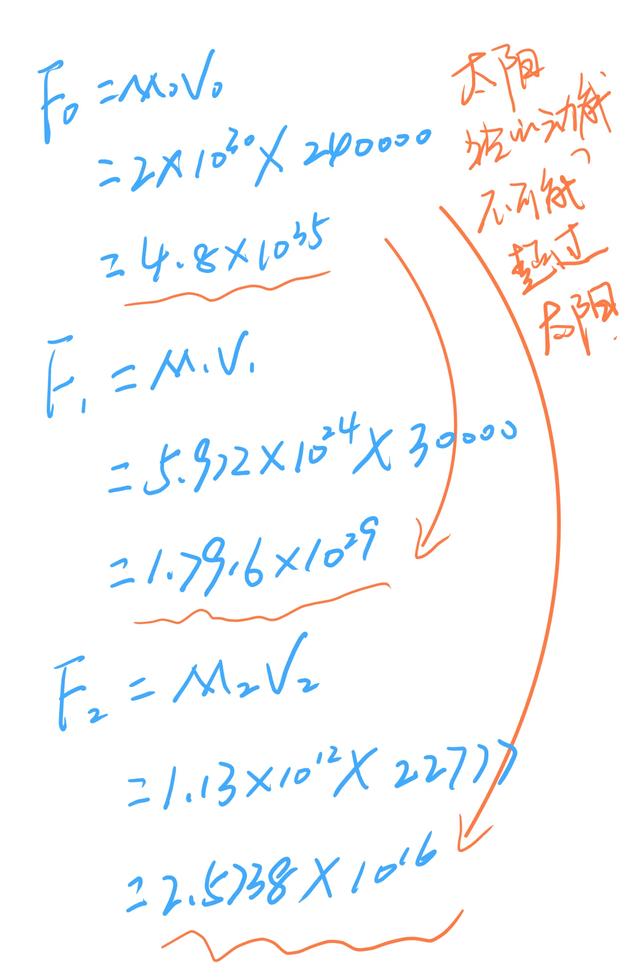 F₀ = M₀V₀
= 2×10³⁰ × 240000
= 4.8×10³⁵
F₁ = M₁V₁
= 5.972×10²⁴ × 30000
= 1.7916×10²⁹
F₂ = M₂V₂
= 1.13×10¹² × 22777
= 2.5738×10¹⁶
太阳
动能
不可能
超过
太阳